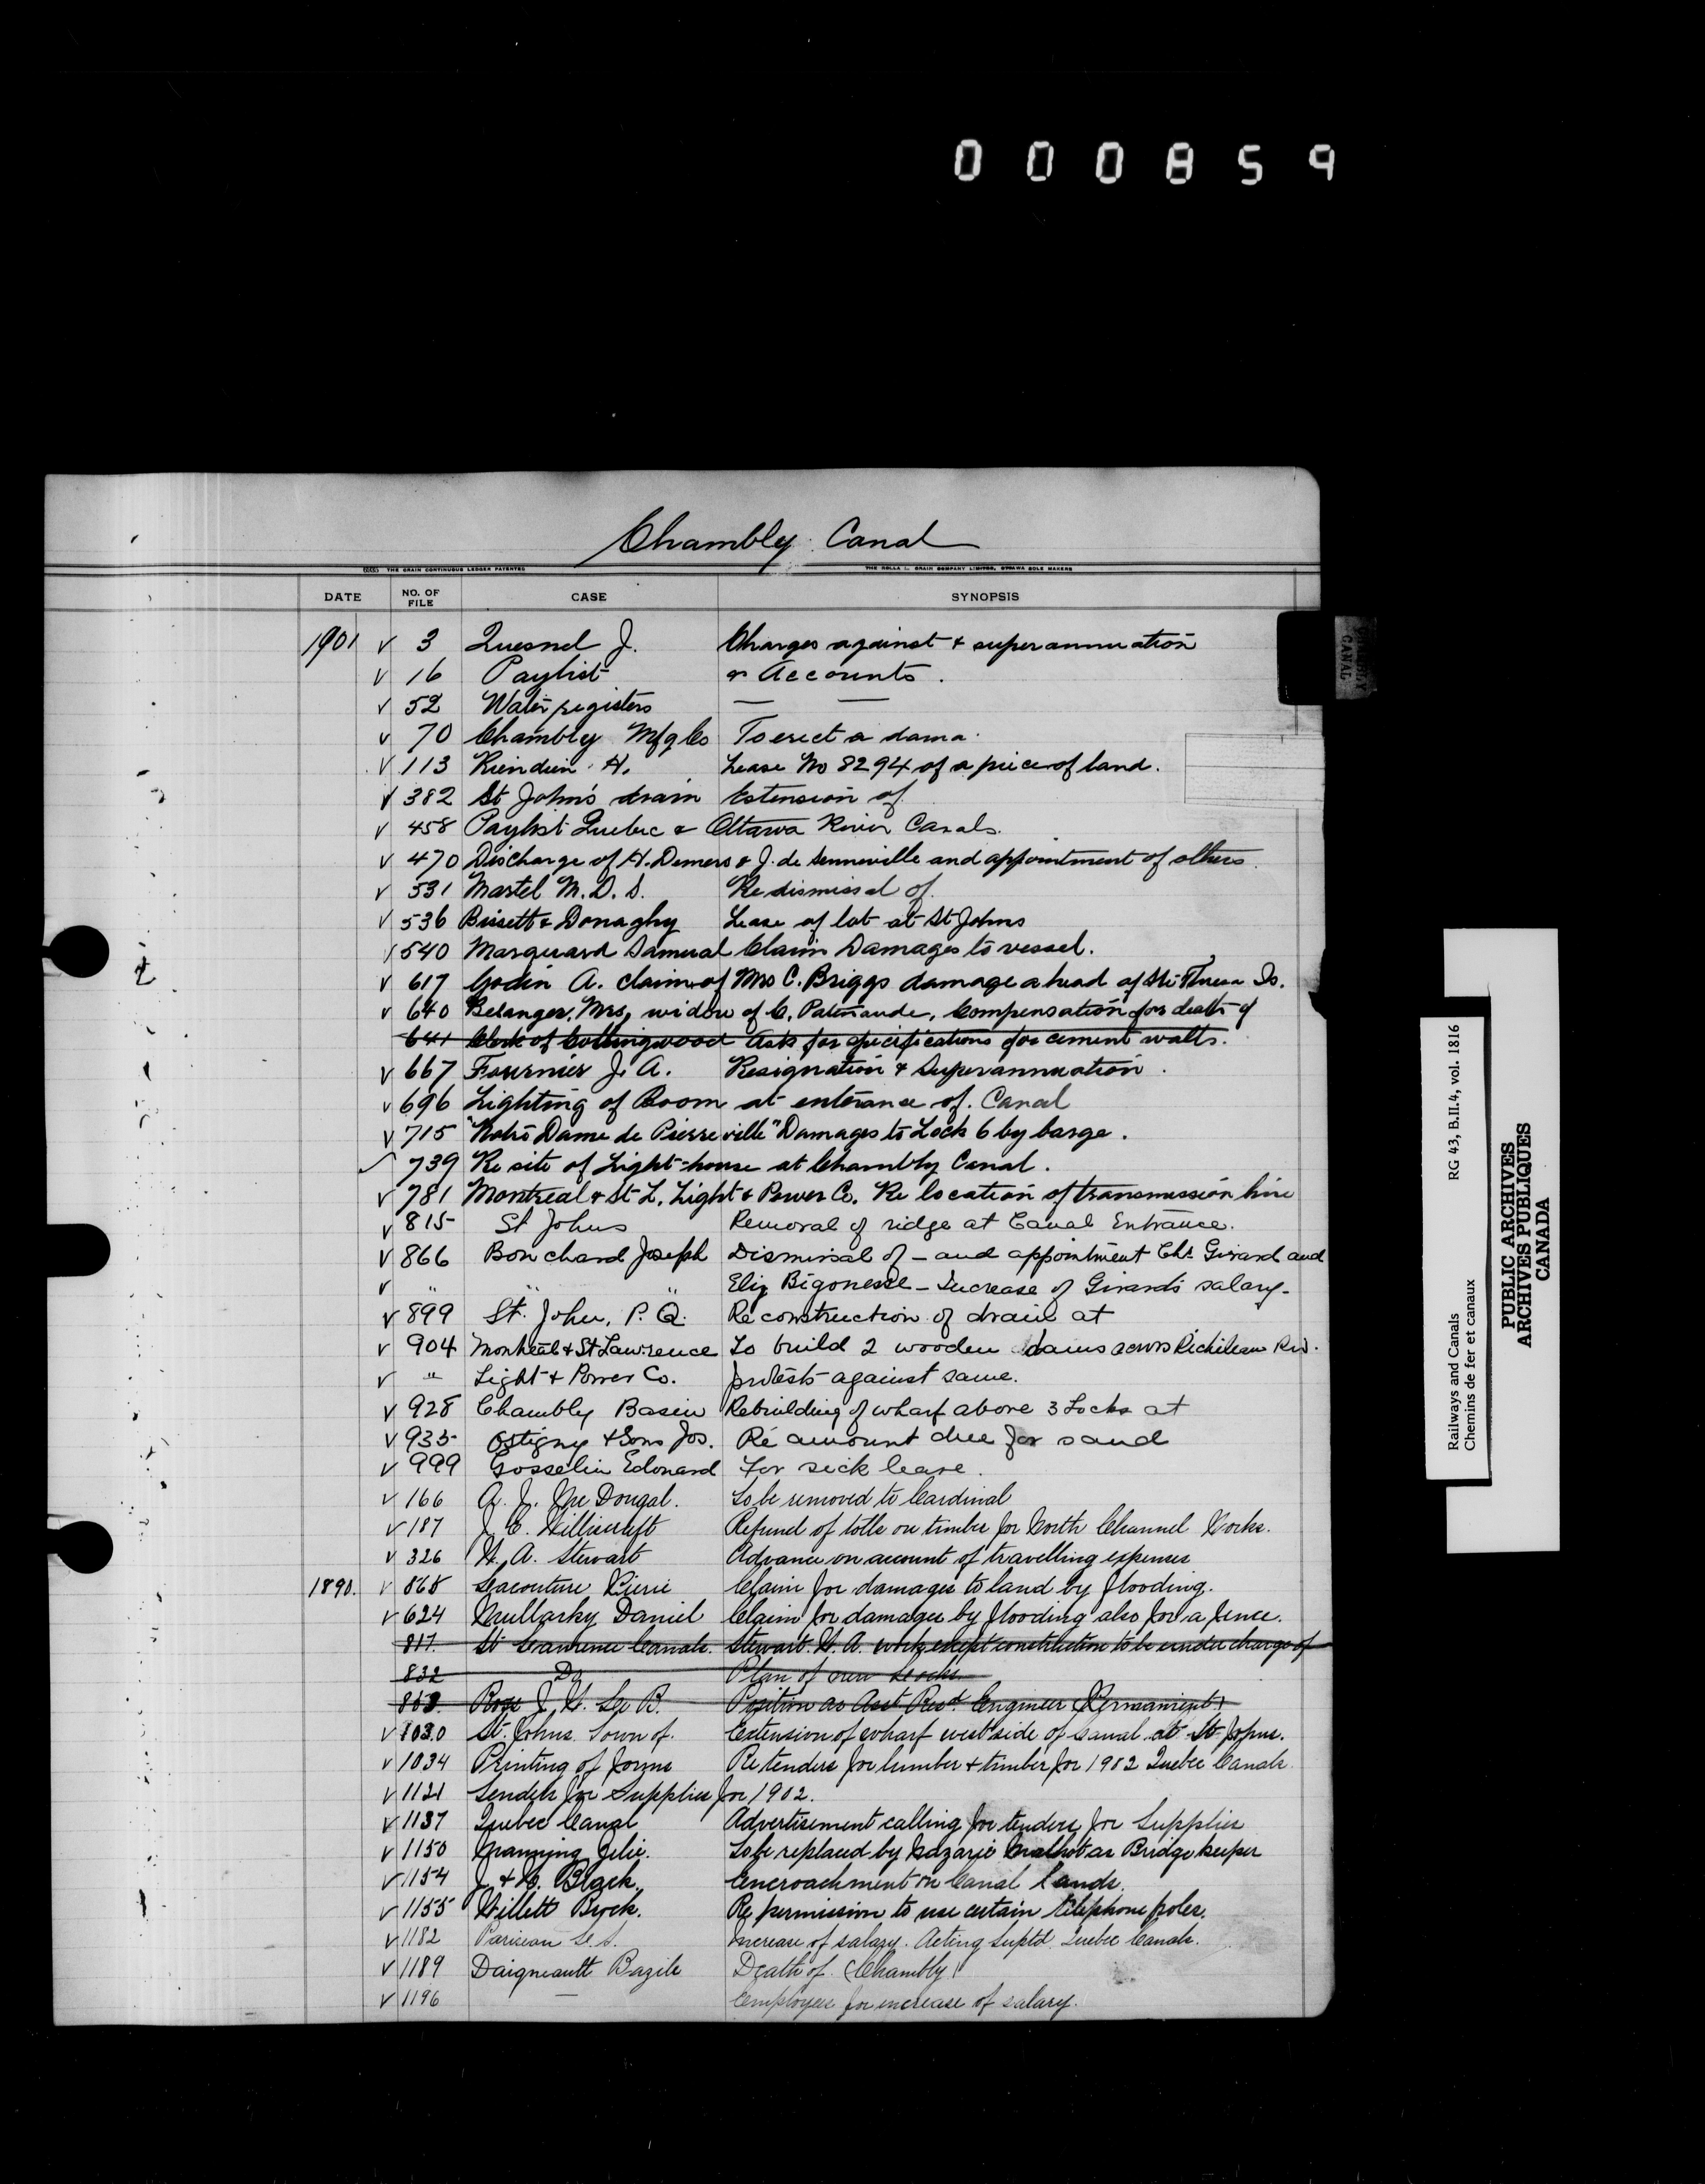 0 0 0 8 5 9
Chambly Canal
THE CRAIN CONTINUOUS LEDGER PATENTED THE ROLLA L. CRAIN COMPANY LIMITED, OTTAWA SOLE MAKERS
DATE NO. OF FILE CASE SYNOPSIS
1901 3 Quesnel J. Charges against & superannuation
16 Paylist & Accounts.
52 Water registers — —
70 Chambly Mfg Co To erect a dam
113 Riendeau H. Lease No 8294 of a piece of land.
382 St John's drain Extension of
458 Paylist Quebec & Ottawa River Canals.
470 Discharge of H. Demers & J. de Senneville and appointment of others.
531 Martel M. D. S. Re dismissal of
536 Bissett & Donaghy Lease of lot at St Johns
540 Marquard Samuel Claim Damages to vessel.
617 Godin A. claim of Mrs C. Briggs damage ahead of Ste Theresa Is.
640 Belanger, Mrs, widow of C. Patenaude, Compensation for death of
641 Clerk of Collingwood Asks for specifications for cement walls.
667 Fournier J. A. Resignation & Superannuation.
696 Lighting of Boom at entrance of Canal
715 "Notre Dame de Pierreville" Damages to Lock 6 by barge.
739 Re site of Light-house at Chambly Canal.
781 Montreal & St L. Light & Power Co. Re location of transmission line
815 St Johns Removal of ridge at Canal Entrance.
866 Bouchard Joseph Dismissal of — and appointment Chs Girard and
" " " Eliz Bigonesse — Increase of Girard's salary —
899 St. John, P. Q. Reconstruction of drain at
904 Montreal & St Lawrence To build 2 wooden dams across Richelieu Riv.
" Light & Power Co. protests against same.
928 Chambly Basin Rebuilding of wharf above 3 Locks at
935 Ostigny & Sons Jos. Re amount due for sand
999 Gosselin Edouard For sick leave.
166 A. J. McDougal. To be removed to Cardinal
187 J. C. Refund of tolls on timber for North Channel Works.
326 H. A. Stewart Advance on account of travelling expenses
1890. 868 Lacouture Pierre Claim for damages to land by flooding.
624 Mullarky Daniel Claim for damages by flooding also for a fence.
817. St Lawrence Canals. Stewart. H. A. work except construction to be under charge of
832 Do Plan of new Locks
853. J. H. Le B. Position as Asst Resd Engineer (Permanent)
1030 St. Johns Town of. Extension of wharf west side of Canal at St Johns.
1034 Printing of forms Re tenders for lumber & timber for 1902 Quebec Canals.
1121 Tenders for Supplies for 1902.
1137 Quebec Canal Advertisement calling for tenders for Supplies
1150 To be replaced by Nazarie Malhot as Bridge keeper
1154 J. & Black. Encroachment on Canal lands.
1155 Willett Brock. Re permission to use certain telephone poles.
1182 Pariseau L. S. Increase of salary. Acting Suptd. Quebec Canals.
1189 Daigneault Bazile Death of (Chambly)
1196 — Employees for increase of salary.
CANAL
Railways and Canals RG 43, B.II.4, vol. 1816
Chemins de fer et canaux
PUBLIC ARCHIVES
ARCHIVES PUBLIQUES
CANADA